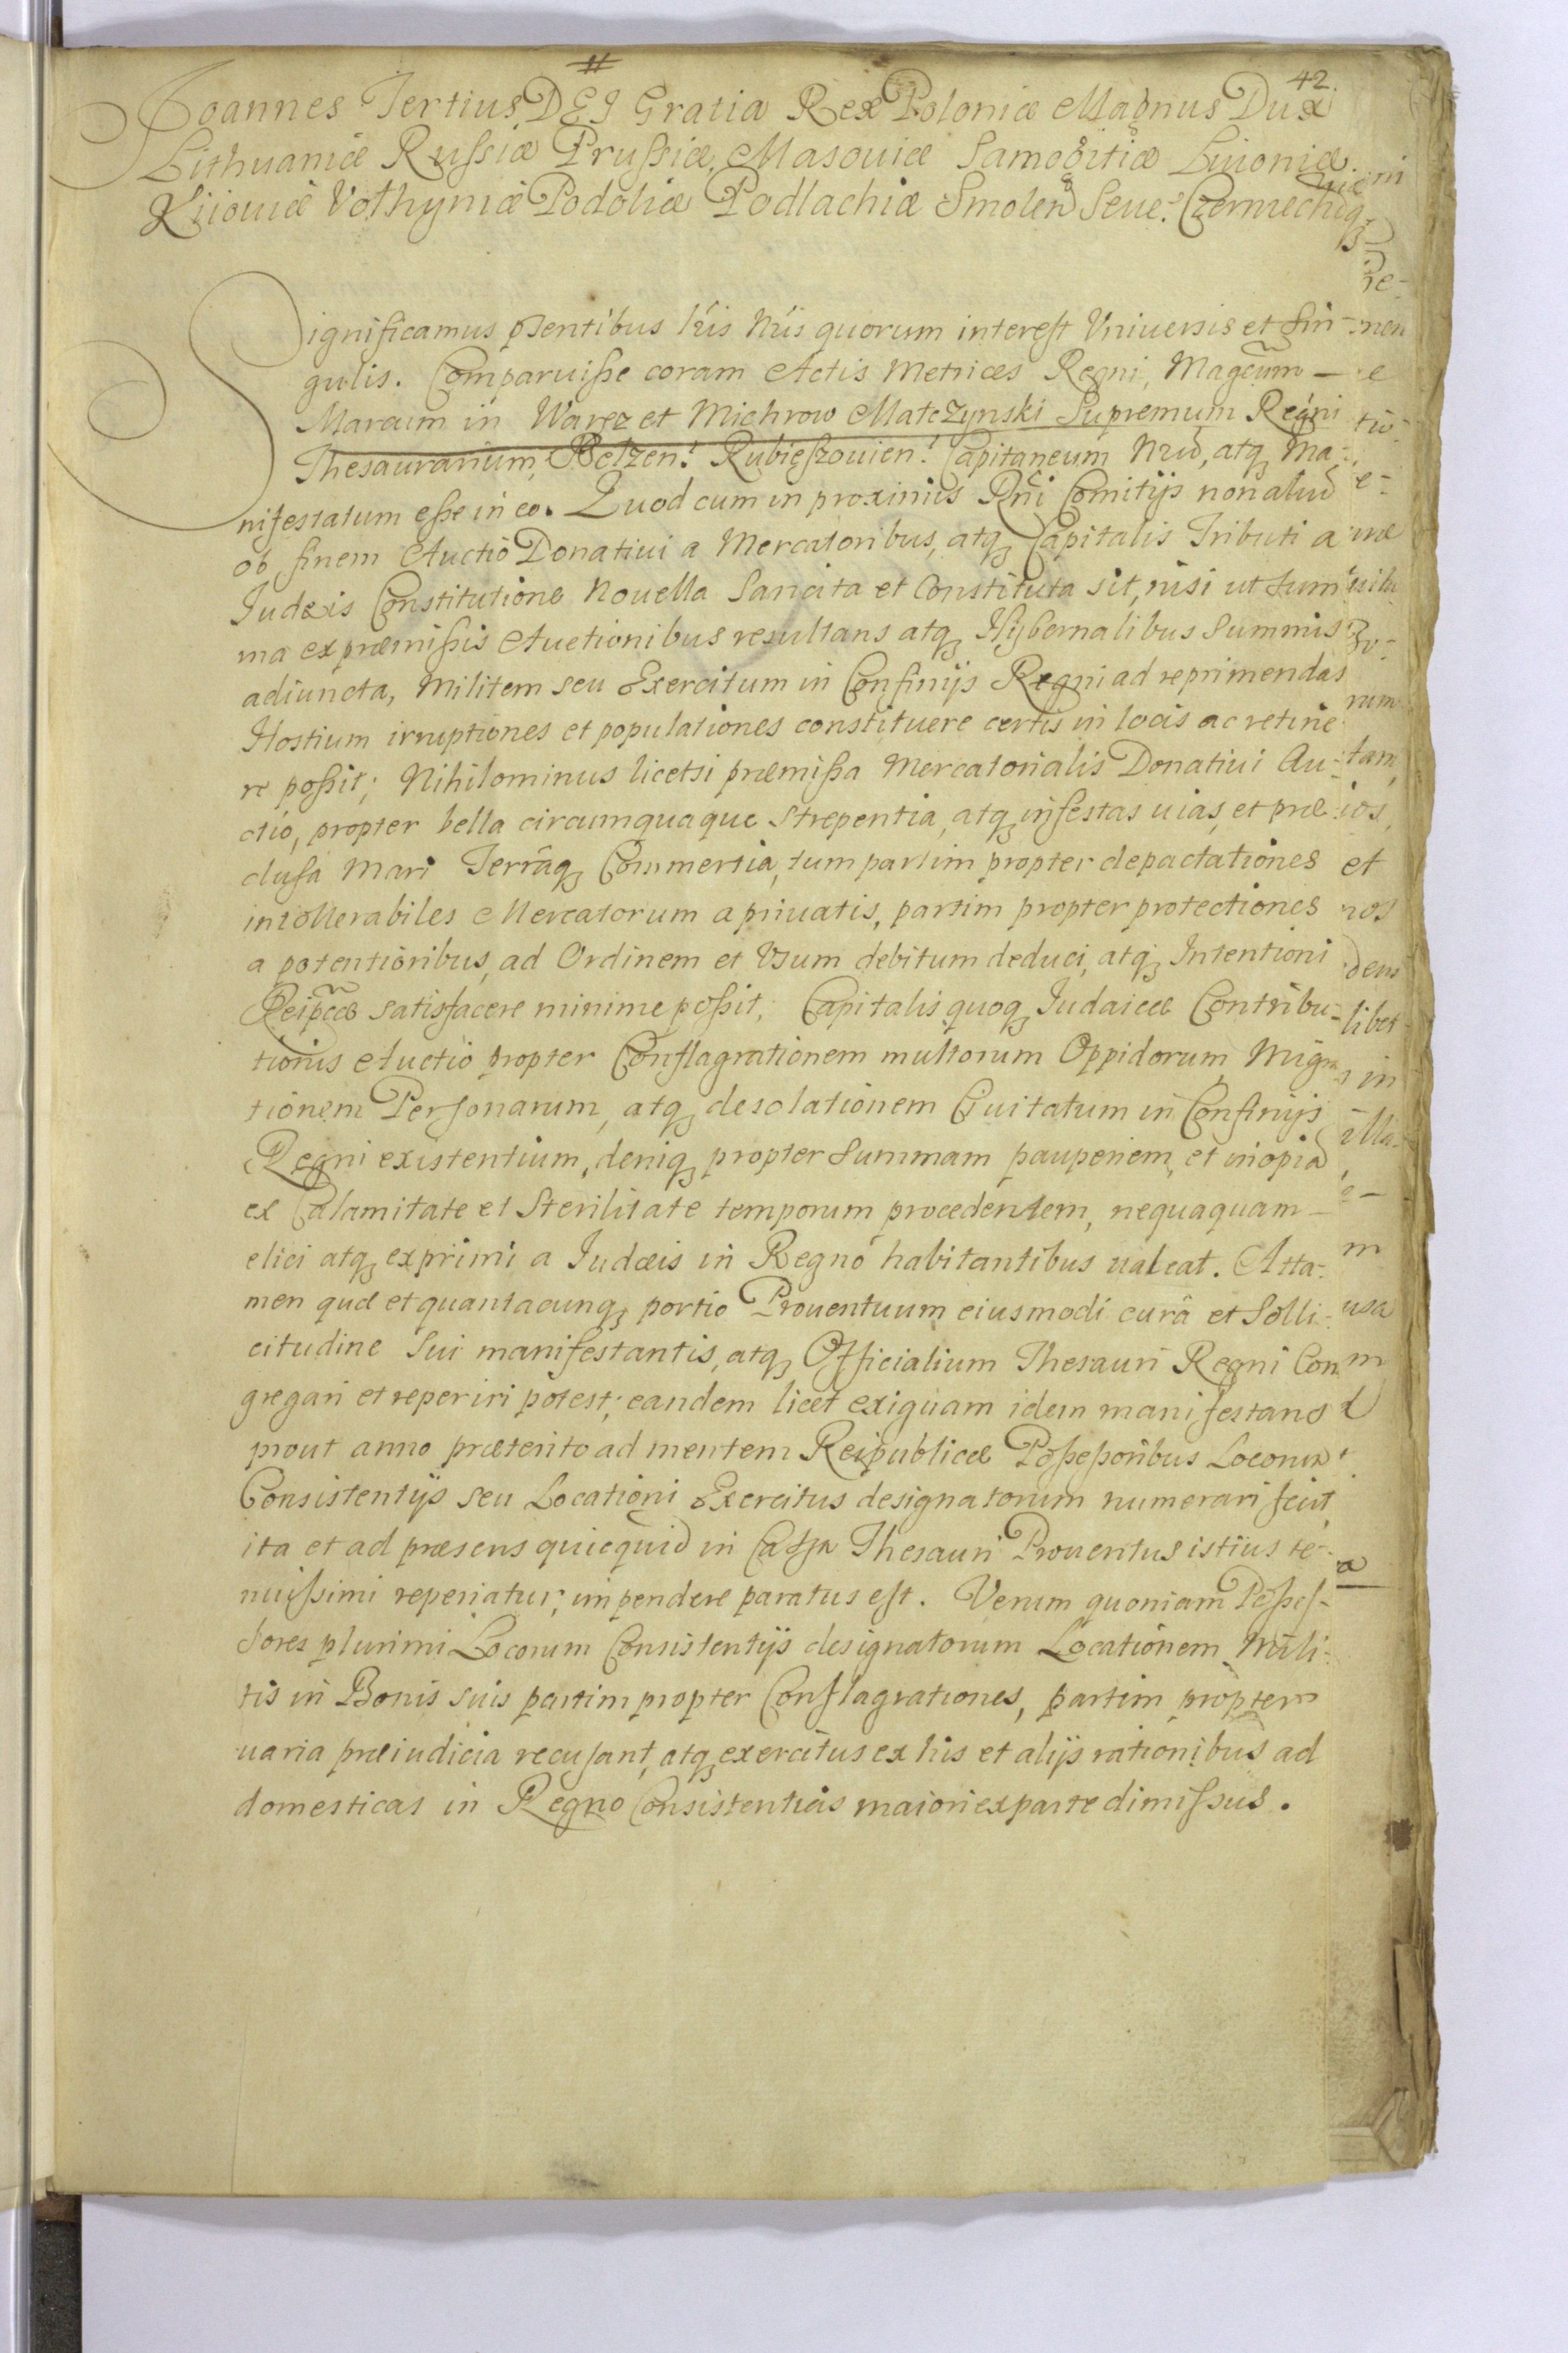 42.
Joannes Tertius DEI Gratia Rex Poloniæ Magnus Dux
Lithuaniæ Russiæ Prussiæ, Masouiæ Samogitiæ Liuoniæ
Kiiouiæ Volhyniæ Podoliæ Podlachiæ Smoleń Seue: Czerniechq3
Significamus pñtibus lris Nris quorum interest Vniuersis et sin-
gulis. Comparuisse coram Actis Metrices Regni, Magcum
Marcum in Warez et Michrow Matczynski Supremum Regni
Thesaurarium, Belzen: Rubięszouien: Capitaneum Nrũ, atq3 Ma-
nifestatum esse in eo. Quod cum in proximis Rñi Comitijs non aliud
ob finem Auctio Donatiui a Mercatoribus, atq3 Capitalis Tributi a
Iudæis Constitutione Nouella Sancita et Constituta sit, nisi ut Sum
ma ex præmissis Auctionibus resultans atq3 Hybernalibus Summis
adiuncta, Militem seu Exercitum in Confinijs Regni ad reprimendas
Hostium irruptiones et populationes constituere certis in locis ac retine
re possit; Nihilominus licetsi præmissa Mercatorialis Donatiui Au-
ctio, propter bella circumquaque Strepentia, atq3 infestas uias, et præ
clusa Mari Terrâq3 Commertia, tum partim propter depactationes
intollerabiles Mercatorum a priuatis, partim propter protectiones
a potentioribus, ad Ordinem et Vsum debitum deduci, atq3 Intentioni
Reipcæ satisfacere minime possit; Capitalis quoq3 Iudaicæ Contribu-
tionis Auctio propter Conflagrationem multorum Oppidorum, Migra
tionem Personarum, atq3 desolationem Ciuitatum in Confinijs
Regni existentium, deniq3 propter Summam pauperiem, et inopiã
ex Calamitate et Sterilitate temporum procedentem, nequaquam
elici atq3 exprimi a Iudæis in Regno habitantibus ualeat. Atta-
men quæ et quantacunq3 portio Prouentuum eiusmodi curâ et Solli-
citudine Sui manifestantis, atq3 Officialium Thesauri Regni Con
gregari et reperiri potest; eandem licet exiguam idem manifestans
prout anno præterito ad mentem Reipublicæ Possessoribus Locorum
Consistentijs seu Locationi Exercitus designatorum numerari fecit
ita et ad præsens quicquid in Cassa Thesauri Prouentus istius te-
nuissimi reperiatur, impendere paratus est. Verum quoniam Posses-
sores plurimi Locorum Consistentijs designatorum Locationem Mili-
tis in Bonis suis partim propter Conflagrationes, partim propter
uaria præiudicia recusant, atq3 exercitus ex his et alijs rationibus ad
domesticas in Regno Consistentias maiori ex parte dimissus.